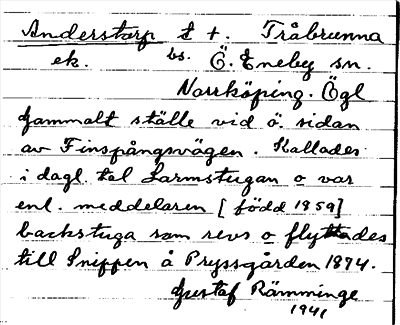 Anderstorp t t. Tråbrunna
ek. bs. Ö. Eneby sn.
Norrköping. Ögl
Gammalt ställe vid ö. sidan
av Finspångsvägen. Kallades
i dagl. tal Larmstugan o var
enl. meddelaren [född 1859]
backstuga som revs o flyttades
till Snippen å Pryssgården 1874.
Gustaf Rämminge
1941